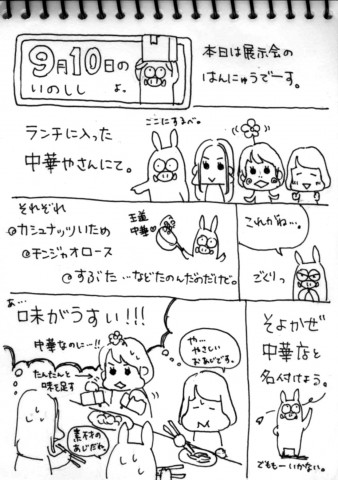 9月10日の
いのしし
よ。
本日は展示会の
はんにゅうでーす。
ランチに入った
中華やさんにて。
ここにすみべ。
それぞれ
@カシュナッツいため
@チンジャオロース
@すぶた…などたのんだのだけど。
王道
中華
これがね…。
ごくりっ
あ…
味がうすい!!!
中華なのに…!!
たんたんと
味を足す
や…
やさしい
おあじです。
素材の
あじだね。
そよかぜ
中華店と
名付けよう。
でももーいかない。